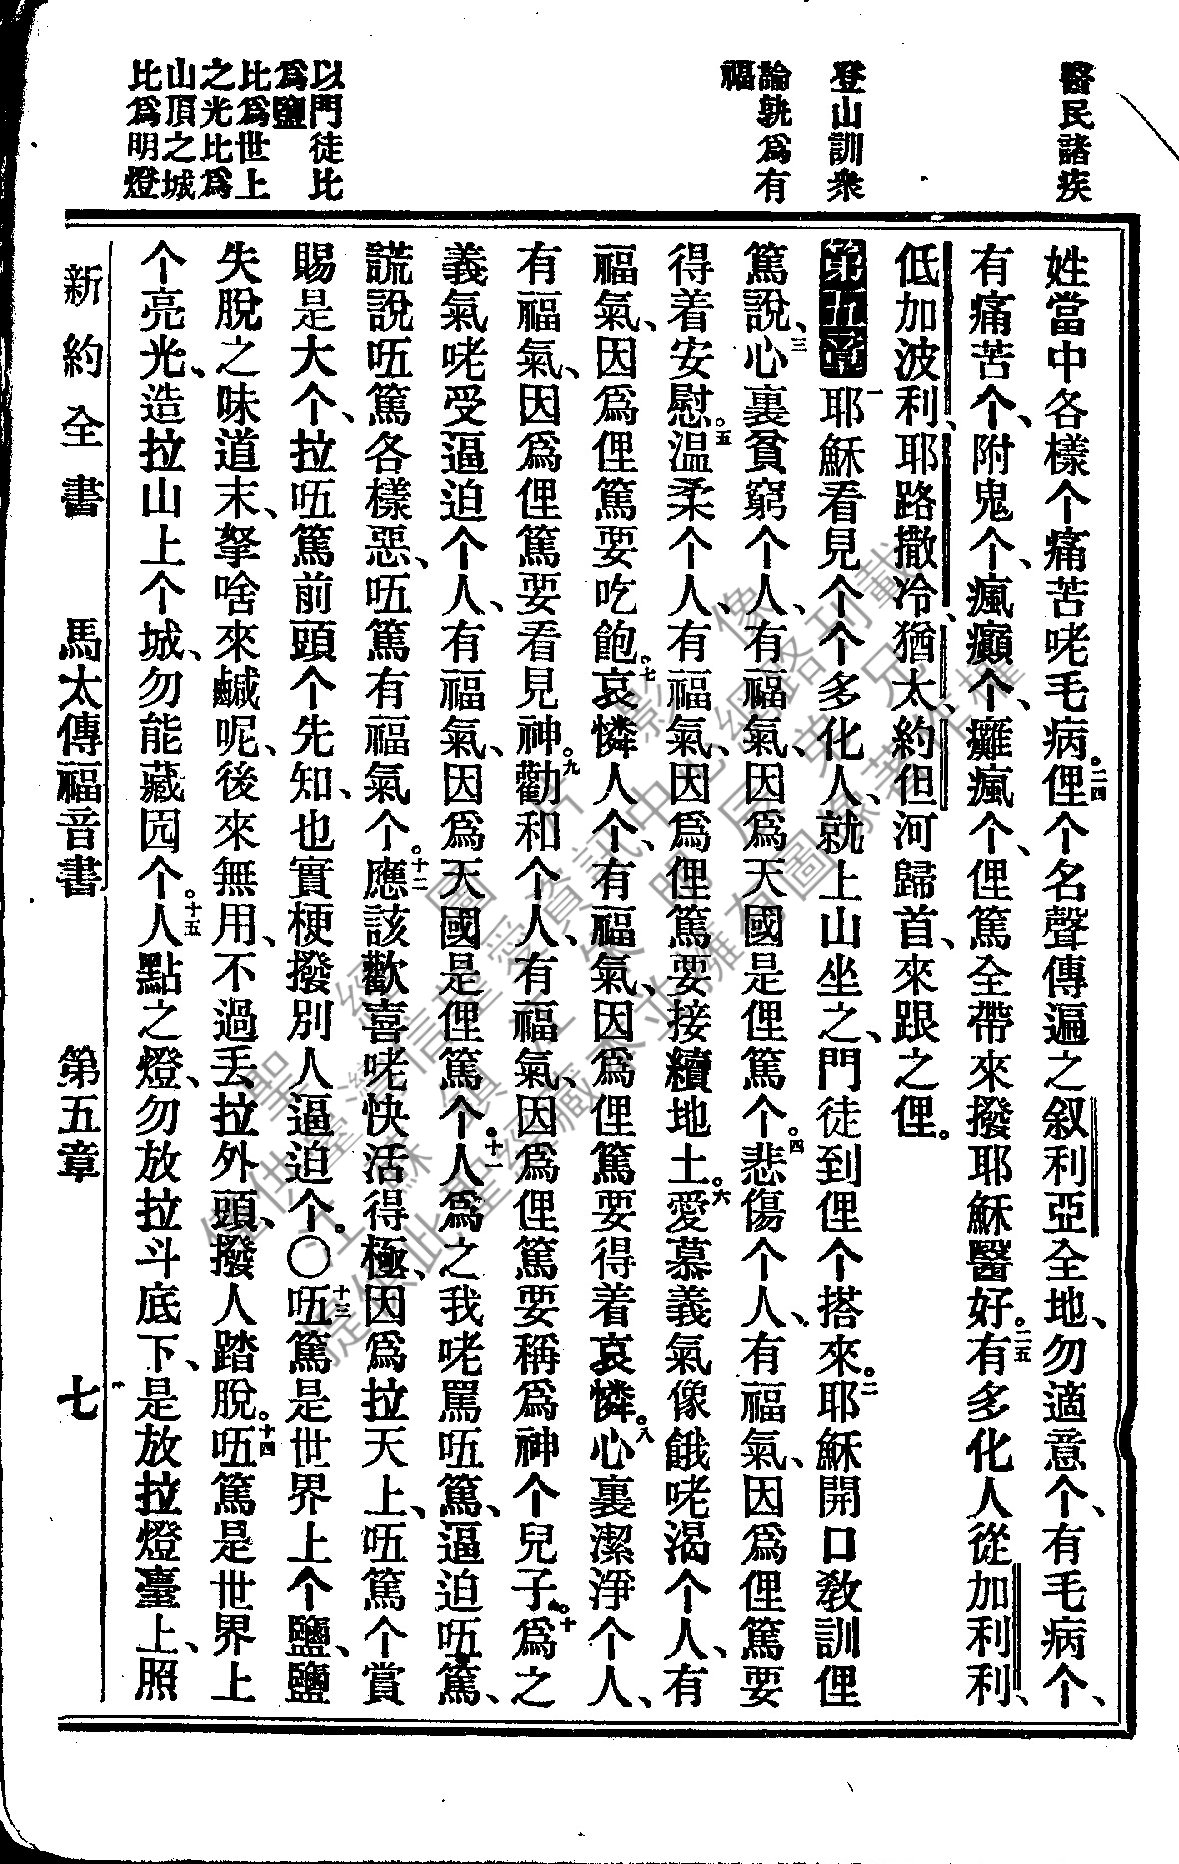 醫民諸疾
登山訓衆
論孰爲有
福
以門徒比
爲鹽
比爲世上
之光比爲
山頂之城
比爲明燈
姓當中各樣个痛苦咾毛病。二四俚个名聲傳遍之叙利亞全地、勿適意个、有毛病个、
有痛苦个、附鬼个、瘋癲个、癱瘋个、俚篤全帶來撥耶穌醫好。二五有多化人從加利利、
低加波利、耶路撒冷、猶太、約但河歸首、來跟之俚。
第五章一耶穌看見个个多化人、就上山坐之、門徒到俚个搭來。二耶穌開口敎訓俚
篤說、三心裏貧窮个人、有福氣、因爲天國是俚篤个。四悲傷个人、有福氣、因爲俚篤要
得着安慰。五温柔个人、有福氣、因爲俚篤要接續地土。六愛慕義氣像餓咾渴个人、有
福氣、因爲俚篤要吃飽。七哀憐人个、有福氣、因爲俚篤要得着哀憐。八心裏潔淨个人、
有福氣、因爲俚篤要看見神。九勸和个人、有福氣、因爲俚篤要稱爲神个兒子。十爲之
義氣咾受逼迫个人、有福氣、因爲天國是俚篤个。十一人爲之我咾罵㕶篤、逼迫㕶篤、
謊說㕶篤各樣惡、㕶篤有福氣个。十二應該歡喜咾快活得極、因爲拉天上、㕶篤个賞
賜是大个、拉㕶篤前頭个先知、也實梗撥別人逼迫个。〇十三㕶篤是世界上个鹽、鹽
失脫之味道末、拏啥來鹹呢、後來無用、不過丟拉外頭、撥人踏脫。十四㕶篤是世界上
个亮光、造拉山上个城、勿能藏囥个。十五人點之燈、勿放拉斗底下、是放拉燈臺上、照
新約全書 馬太傳福音書 第五章 七